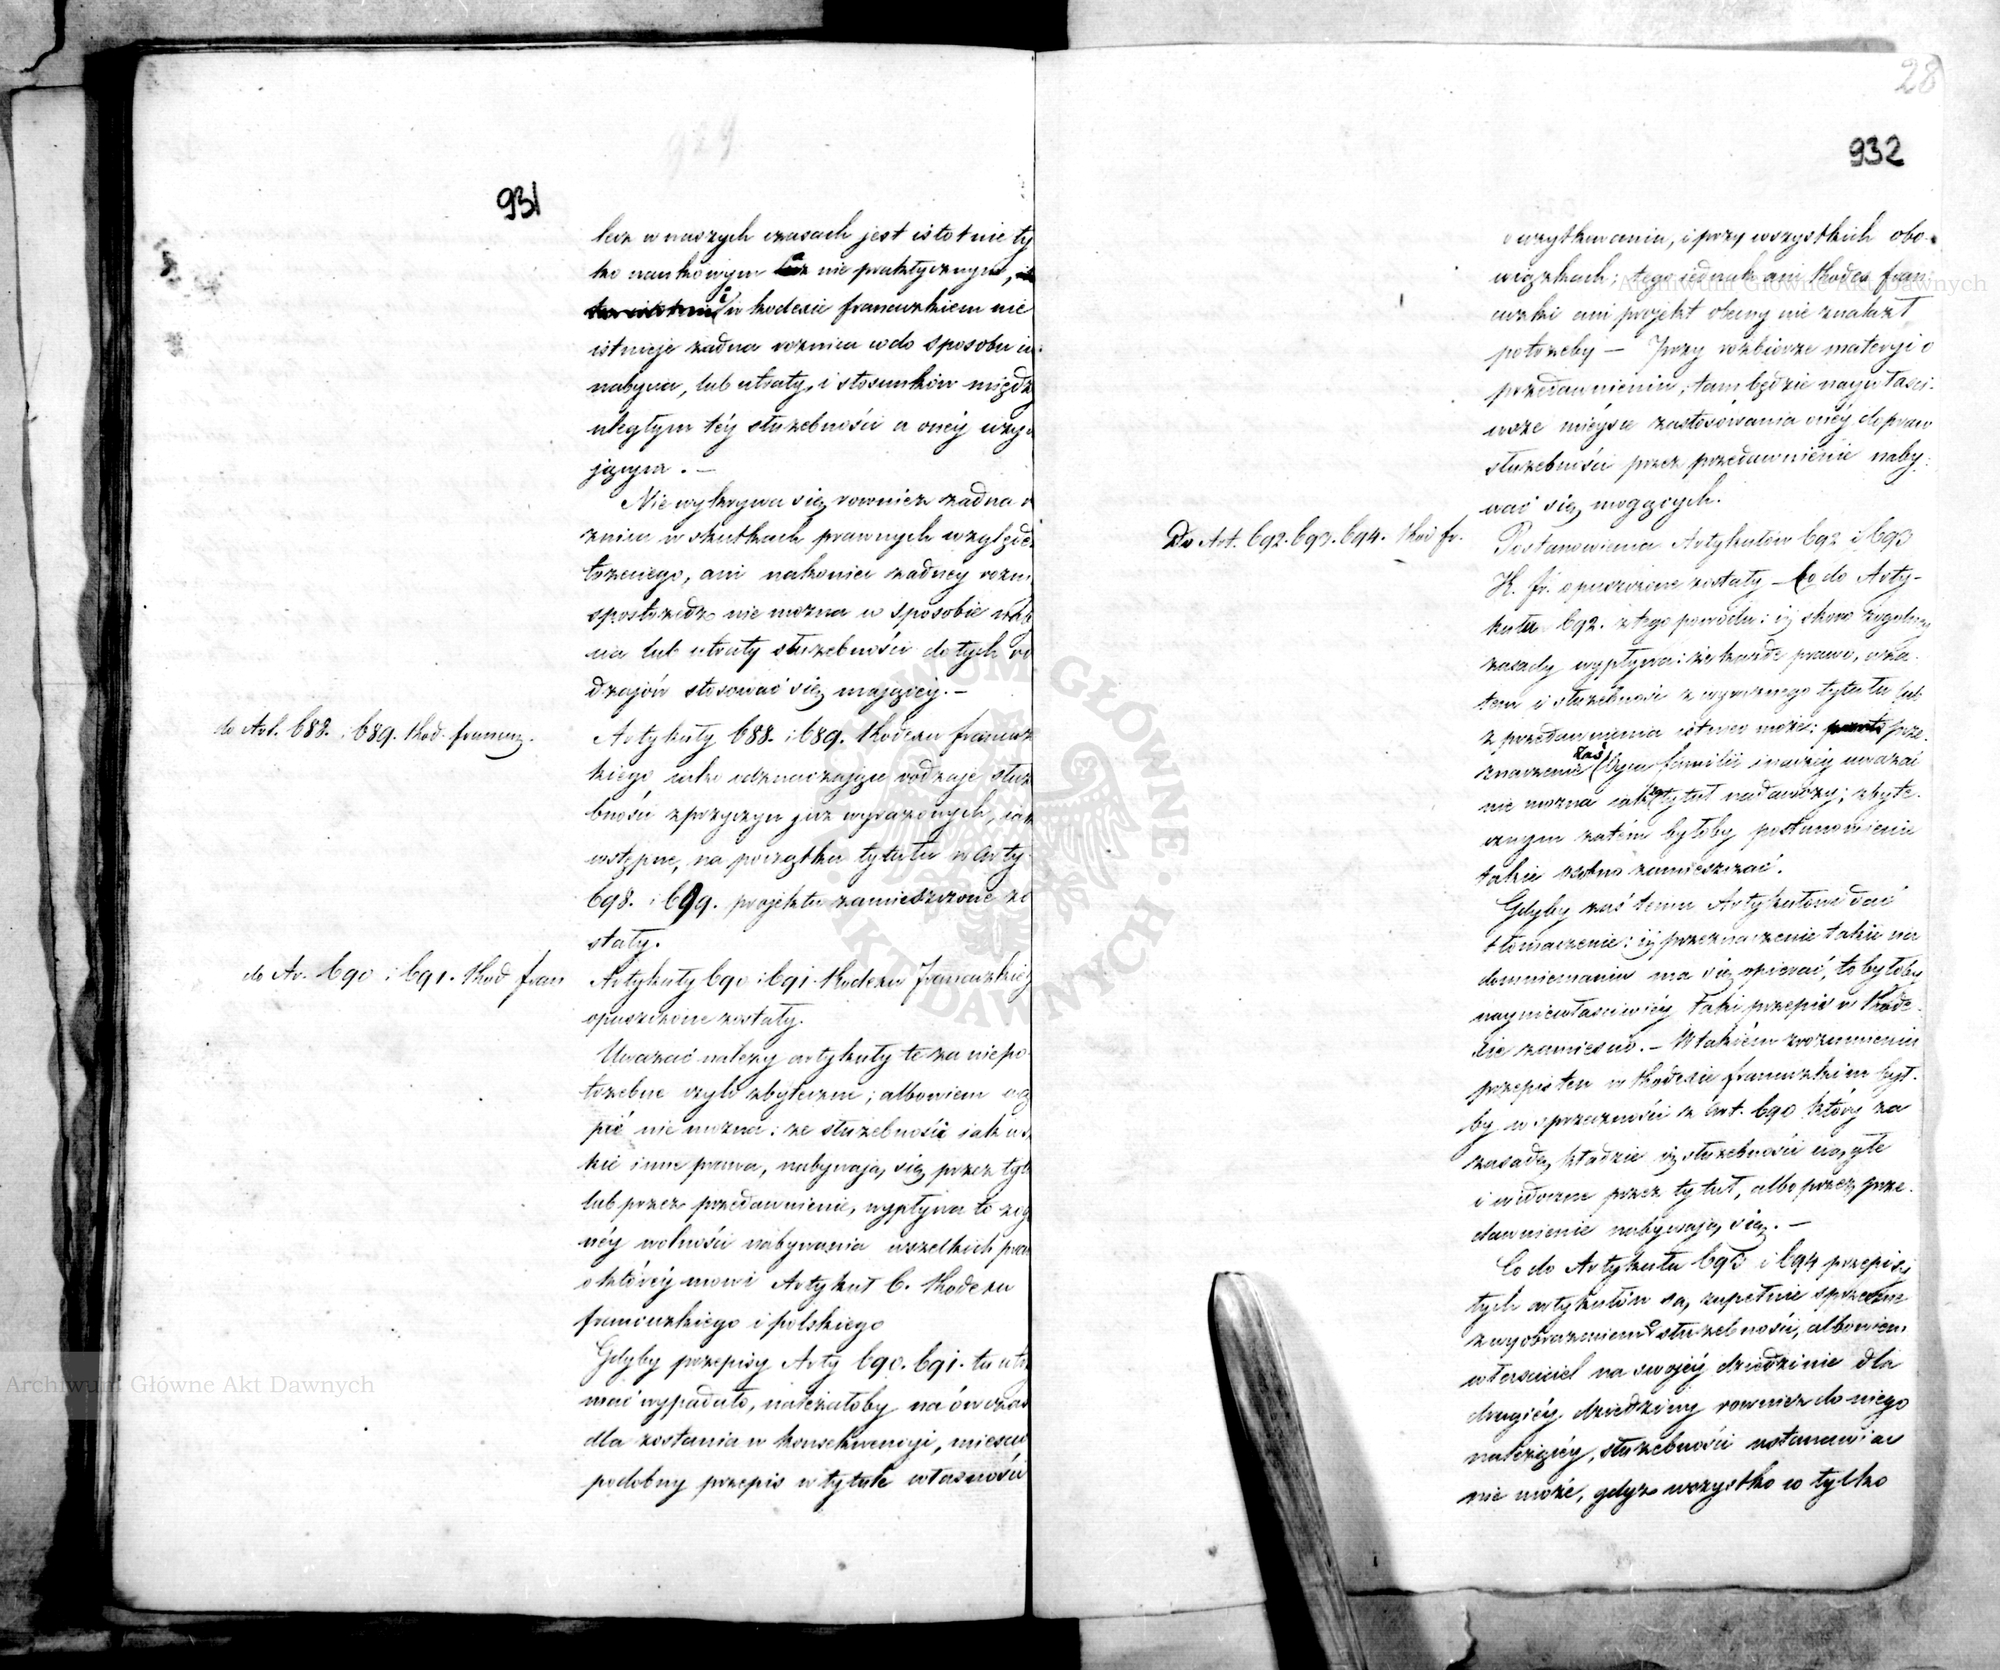 931
lecz w naszych czasach jest istotnie ty
ko naukowym nie praktycznym,
i w kodexie francuzkiem nie
istnieje żadna roznica w do sposobu
nabycia, lub utraty, i stosunków międz
uległym téy służebności a onéy uzy
jącym. —
Nie wykrywa się rownież żadna
znica w skutkach prawnych względ
łożenego, ani nakoniec żadney rozn
spostrzedz nie można w sposobie
nia lub utraty służebności do tych ro
dzajów stosować się mającéy. —
do Art. 688. i 689. Kod. francuz.
Artykuły 688. i 689. Kodexu francuz
kiego jako odznaczające rodzaje służ
bności z przyczyn już wyrażonych, jak
wstępne, na początku tytułu w Arty
698. i 699. projektu zamieszczone zo
stały.
do Ar. 690 i 691. Kod fran
Artykuły 690 i 691 Kodexu Francuzkieg
opuszczone zostały.
Uważać należy artykuły te za niepo
trzebne czyli zbyteczne; albowiem wą
pić nie można: że służebności jak
kie inne prawa, nabywają się przez tyt
lub przez przedawnienie, wypływa to z og
néy wolności nabywania wszelkich praw
o któréy mowi Artykuł 6. Kodexu
francuzkiego i polskiego
Gdyby przepisy Arty 690. 691. tu utrz
mać wypadało, należałoby na ówczas
dla zostania w konsekwencyi, mieścić
podobny przepis w tytule własności
28
932
i użytkowania, i przy wszystkich obo-
wiązkach; tego jednak ani Kodex fran-
cuzki ani projekt obecny nie znalazł
potrzeby — Przy rozbiorze materyi o
przedawnieniu, tam będzie naywłaści-
wsze miéysce zastosowania onéy do praw
służebności przez przedawnienie naby-
wać się mogących.
Do Art. 692. 693. 694. Kod fr.
Postanowienia Artykułów 692 i 693
K. fr. opuszczone zostały — Co do Arty-
kułu 692. z tego powodu: iż skoro z ogolney
zasady wypływa: że każde prawo, a za-
tem i służebność z wyraznego tytułu lub
z przedawnienia istnieć może: prze-
znaczenie zaś Oyca familii inaczéy uważać
nie można jak za tytuł nadawczy; zbyte-
cznym zatém byłoby postanowienie
takie osobno zamieszczać.
Gdyby zaś temu Artykułowi dać
tłomaczenie: iż przeznaczenie takie na
domniemaniu ma się opierać, to byłoby
nayniewłaściwiéy taki przepis w Kode-
xie zamieścić. — W takiém rozumieniu
przepis ten w Kodexie francuzkim był-
by w sprzeczności z Art. 690 który za
zasadę kładzie iż służebności ciągłe
i widoczne przez tytuł, albo przez prze-
dawnienie nabywają się. —
Co do Artykułu 693 i 694 przepisy
tych artykułów są zupełnie sprzeczne
z wyobrażeniem o służebności, albowiem
właściciel na swojéy dziedzinie dla
drugiéy dziedziny rownież do niego
należącéy, służebności ustanawiać
nie może, gdyż wszystko w tylko